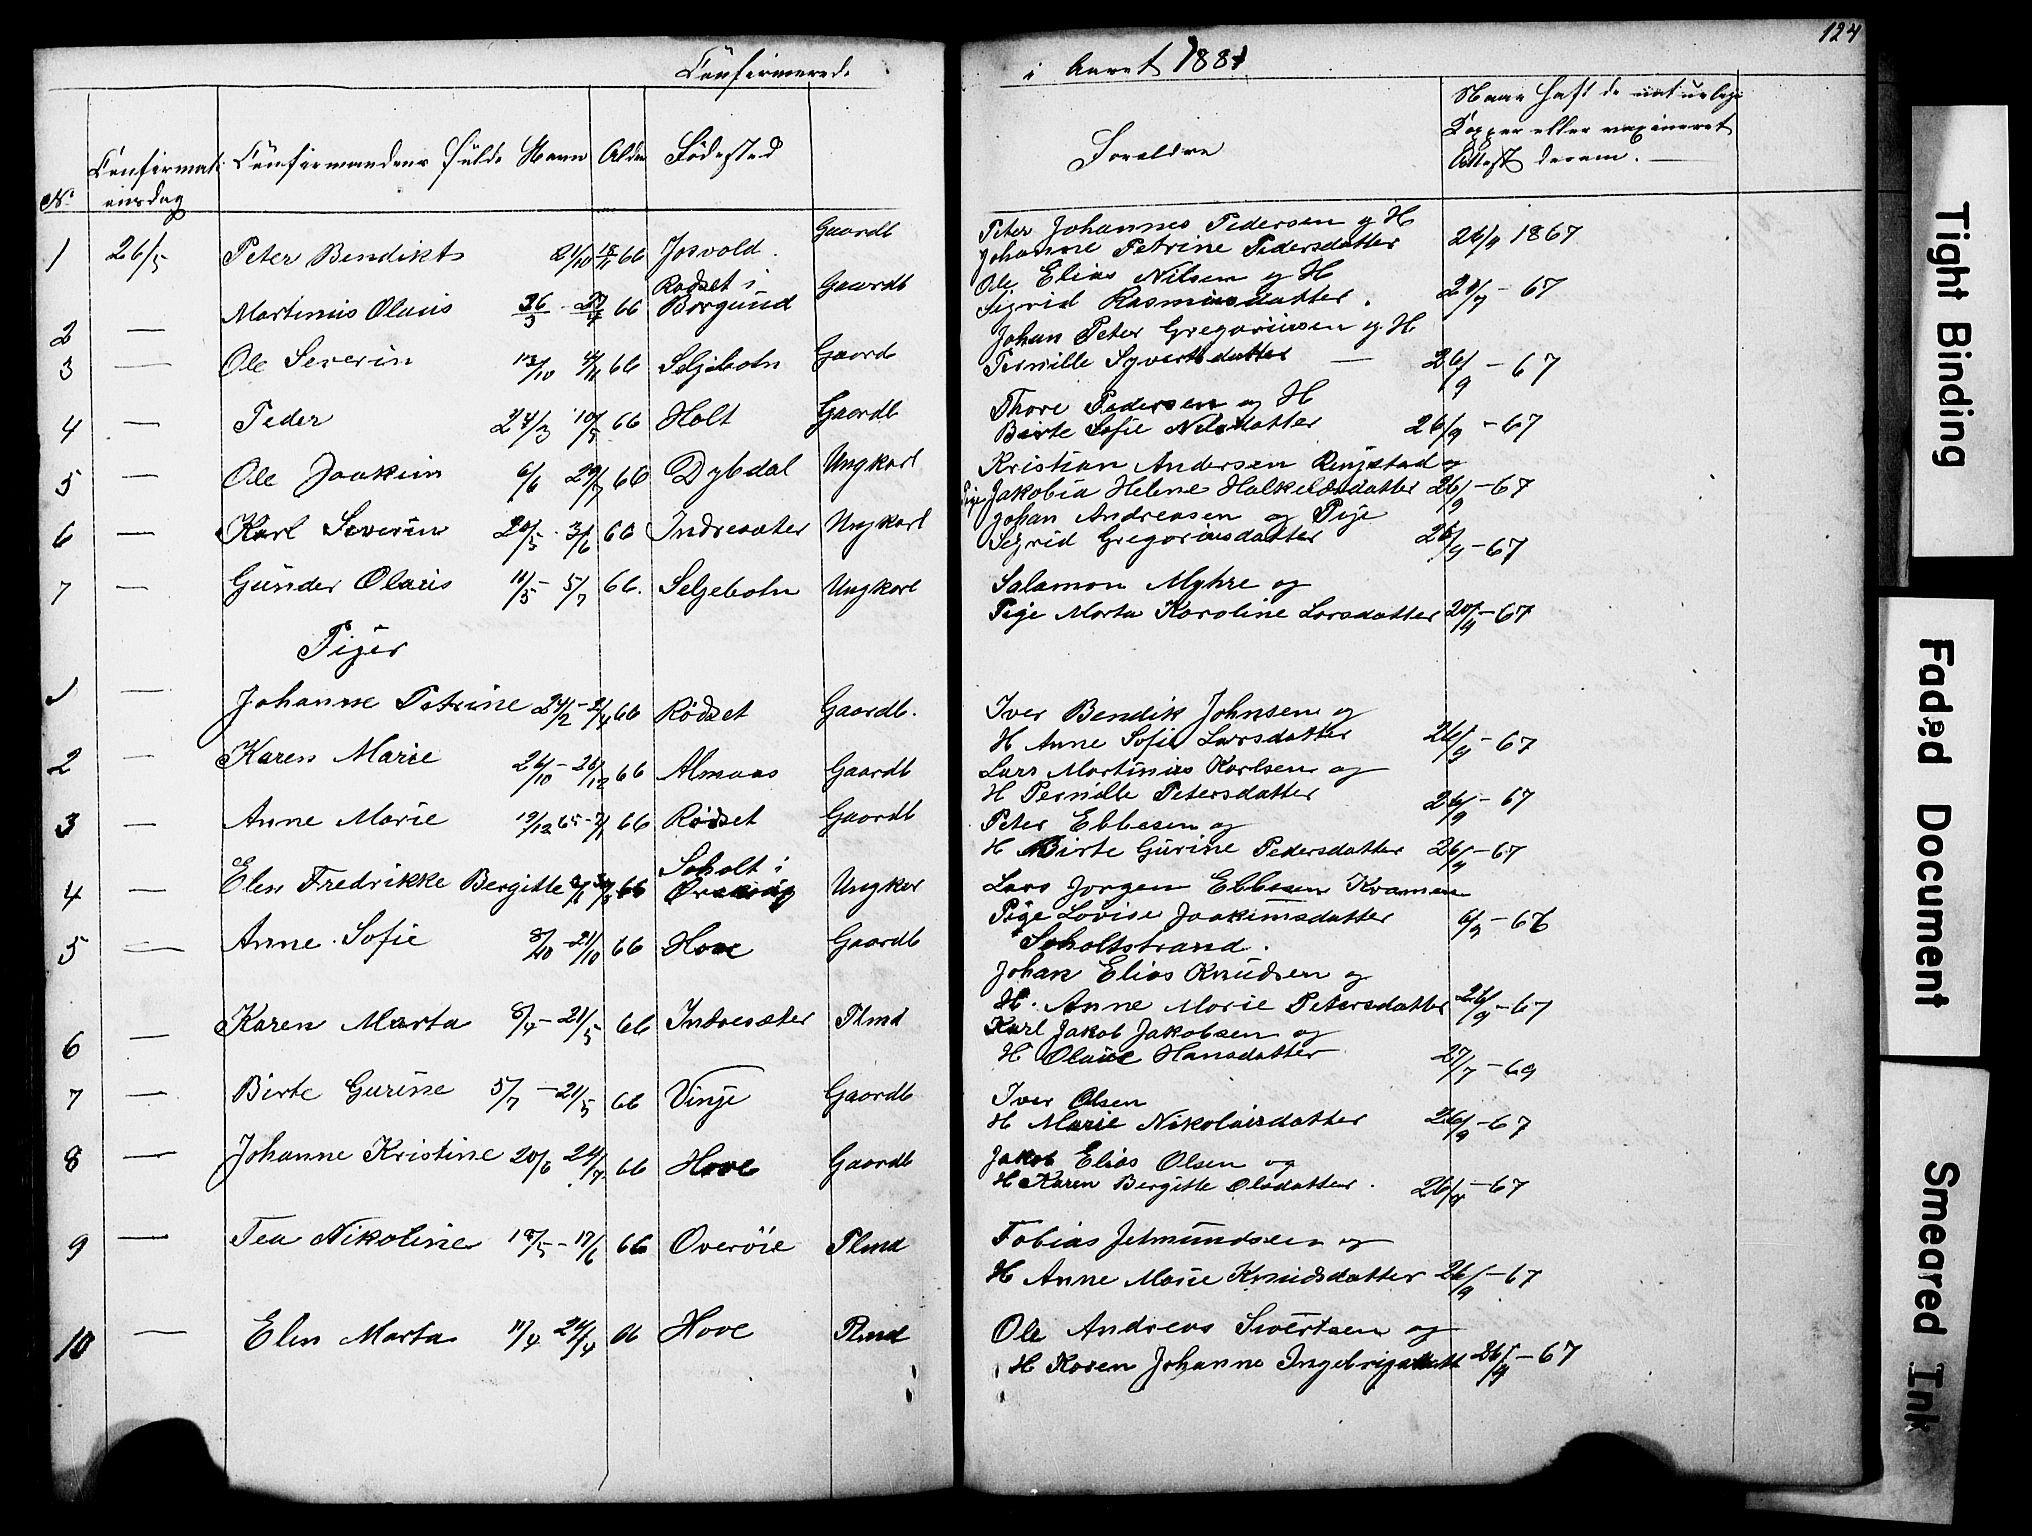 124
Confirmerede i Aaret 1881
No Confirmationsdag Confirmandens fulde Navn Alder Fødested Forældre Naar haft de naturlige Kopper eller vaxineret Attest derom.
Peter Johannes Pedersen og H
1 26/5 Peter Bendikts 21/10 66 Josvold. Gaardb Johanne Petrine Pedersdatter 26/9 1867
Rødset i Ole Elias Nilsen og H
2 — Martinus Olaus 66 Borgund Gaardb Sigrid Rasmusdatter. - 67
Johan Peter Gregoriussen og H
3 — Ole Severin 13/10 4/11 66 Seljebotn Gaard Pernille Syvertsdatter — 26/9 - 67
Thore Pedersen og H
4 — Peder 24/3 10/5 66 Holt Gaardb Birte Sofie Nilsdatter 26/9 - 67
Kristian Andersen Ringstad og
5 — Ole Joakim 6/6 66 Dybdal Ungkarl Pige Jakobia Helene Halkeldsdatter 26/9 - 67
Johan Andreasen og Pige
6 — Karl Severin 20/5 - 3/6 66 Indresæter Ungkarl Sigrid Gregoriusdatter 26/9 - 67
7 — Gunder Olaus 11/5 - 5/7 66. Seljebotn Ungkarl Salamon Myhre og
Pige Marta Karoline Larsdatter - 67
Piger
1 — Johanne Petrine 24/2 - 2/4 66 Rødset Gaardb. Iver Bendik Johnsen og
H Anne Sofie Larsdatter 26/9 - 67
2 — Karen Marie 26/10 - 26/12 66 Almaas Gaardb Lars Martinius Karlsen og
H Pernille Petersdatter 26/9 - 67
3 — Anne Marie 19/12 65 - 66 Rødset Gaardb Peter Ebbesen og
H Birte Gurine Pedersdatter 26/9 - 67
Soholt i
4 — Elen Fredrikke Bergitte 66 Ørskoug Ungkar Lars Jorgen Ebbesen Kvamen
Pige Lovise Joakimsdatter 6/9 - 67
Soholtstrand.
5 — Anne Sofie 8/10 - 21/10 66 Hove Gaardb Johan Elias Knudsen og
H. Anne Marie Petersdatter 26/9 - 67
6 — Karen Marta 8/4 - 21/5 66 Indresæter Plmd Karl Jakob Jakobsen og
H Olave Hansdatter 27/7 - 69
7 — Birte Gurine 5/7 - 21/5 66 Vinje Gaardb Iver Olsen
H Marie Nikolaisdatter 26/9 - 67
8 — Johanne Kristine 20/6 24/7 66 Hove Gaardb Jakob Elias Olsen og
H Karen Bergitte Olsdatter. 26/9 - 67
9 — Tea Nikoline 18/5 - 17/6 66 Overøie Plmd Tobias Jetmundsen og
H Anne Marie Knudsdatter 26/9 - 67
10 — Elen Marta 11/4 24/4 66 Hove Plmd Ole Andreas Sivertsen og
H Karen Johanne Ingebrigsdatt 26/9 - 67
Tight Binding
Faded Document
Smeared Ink